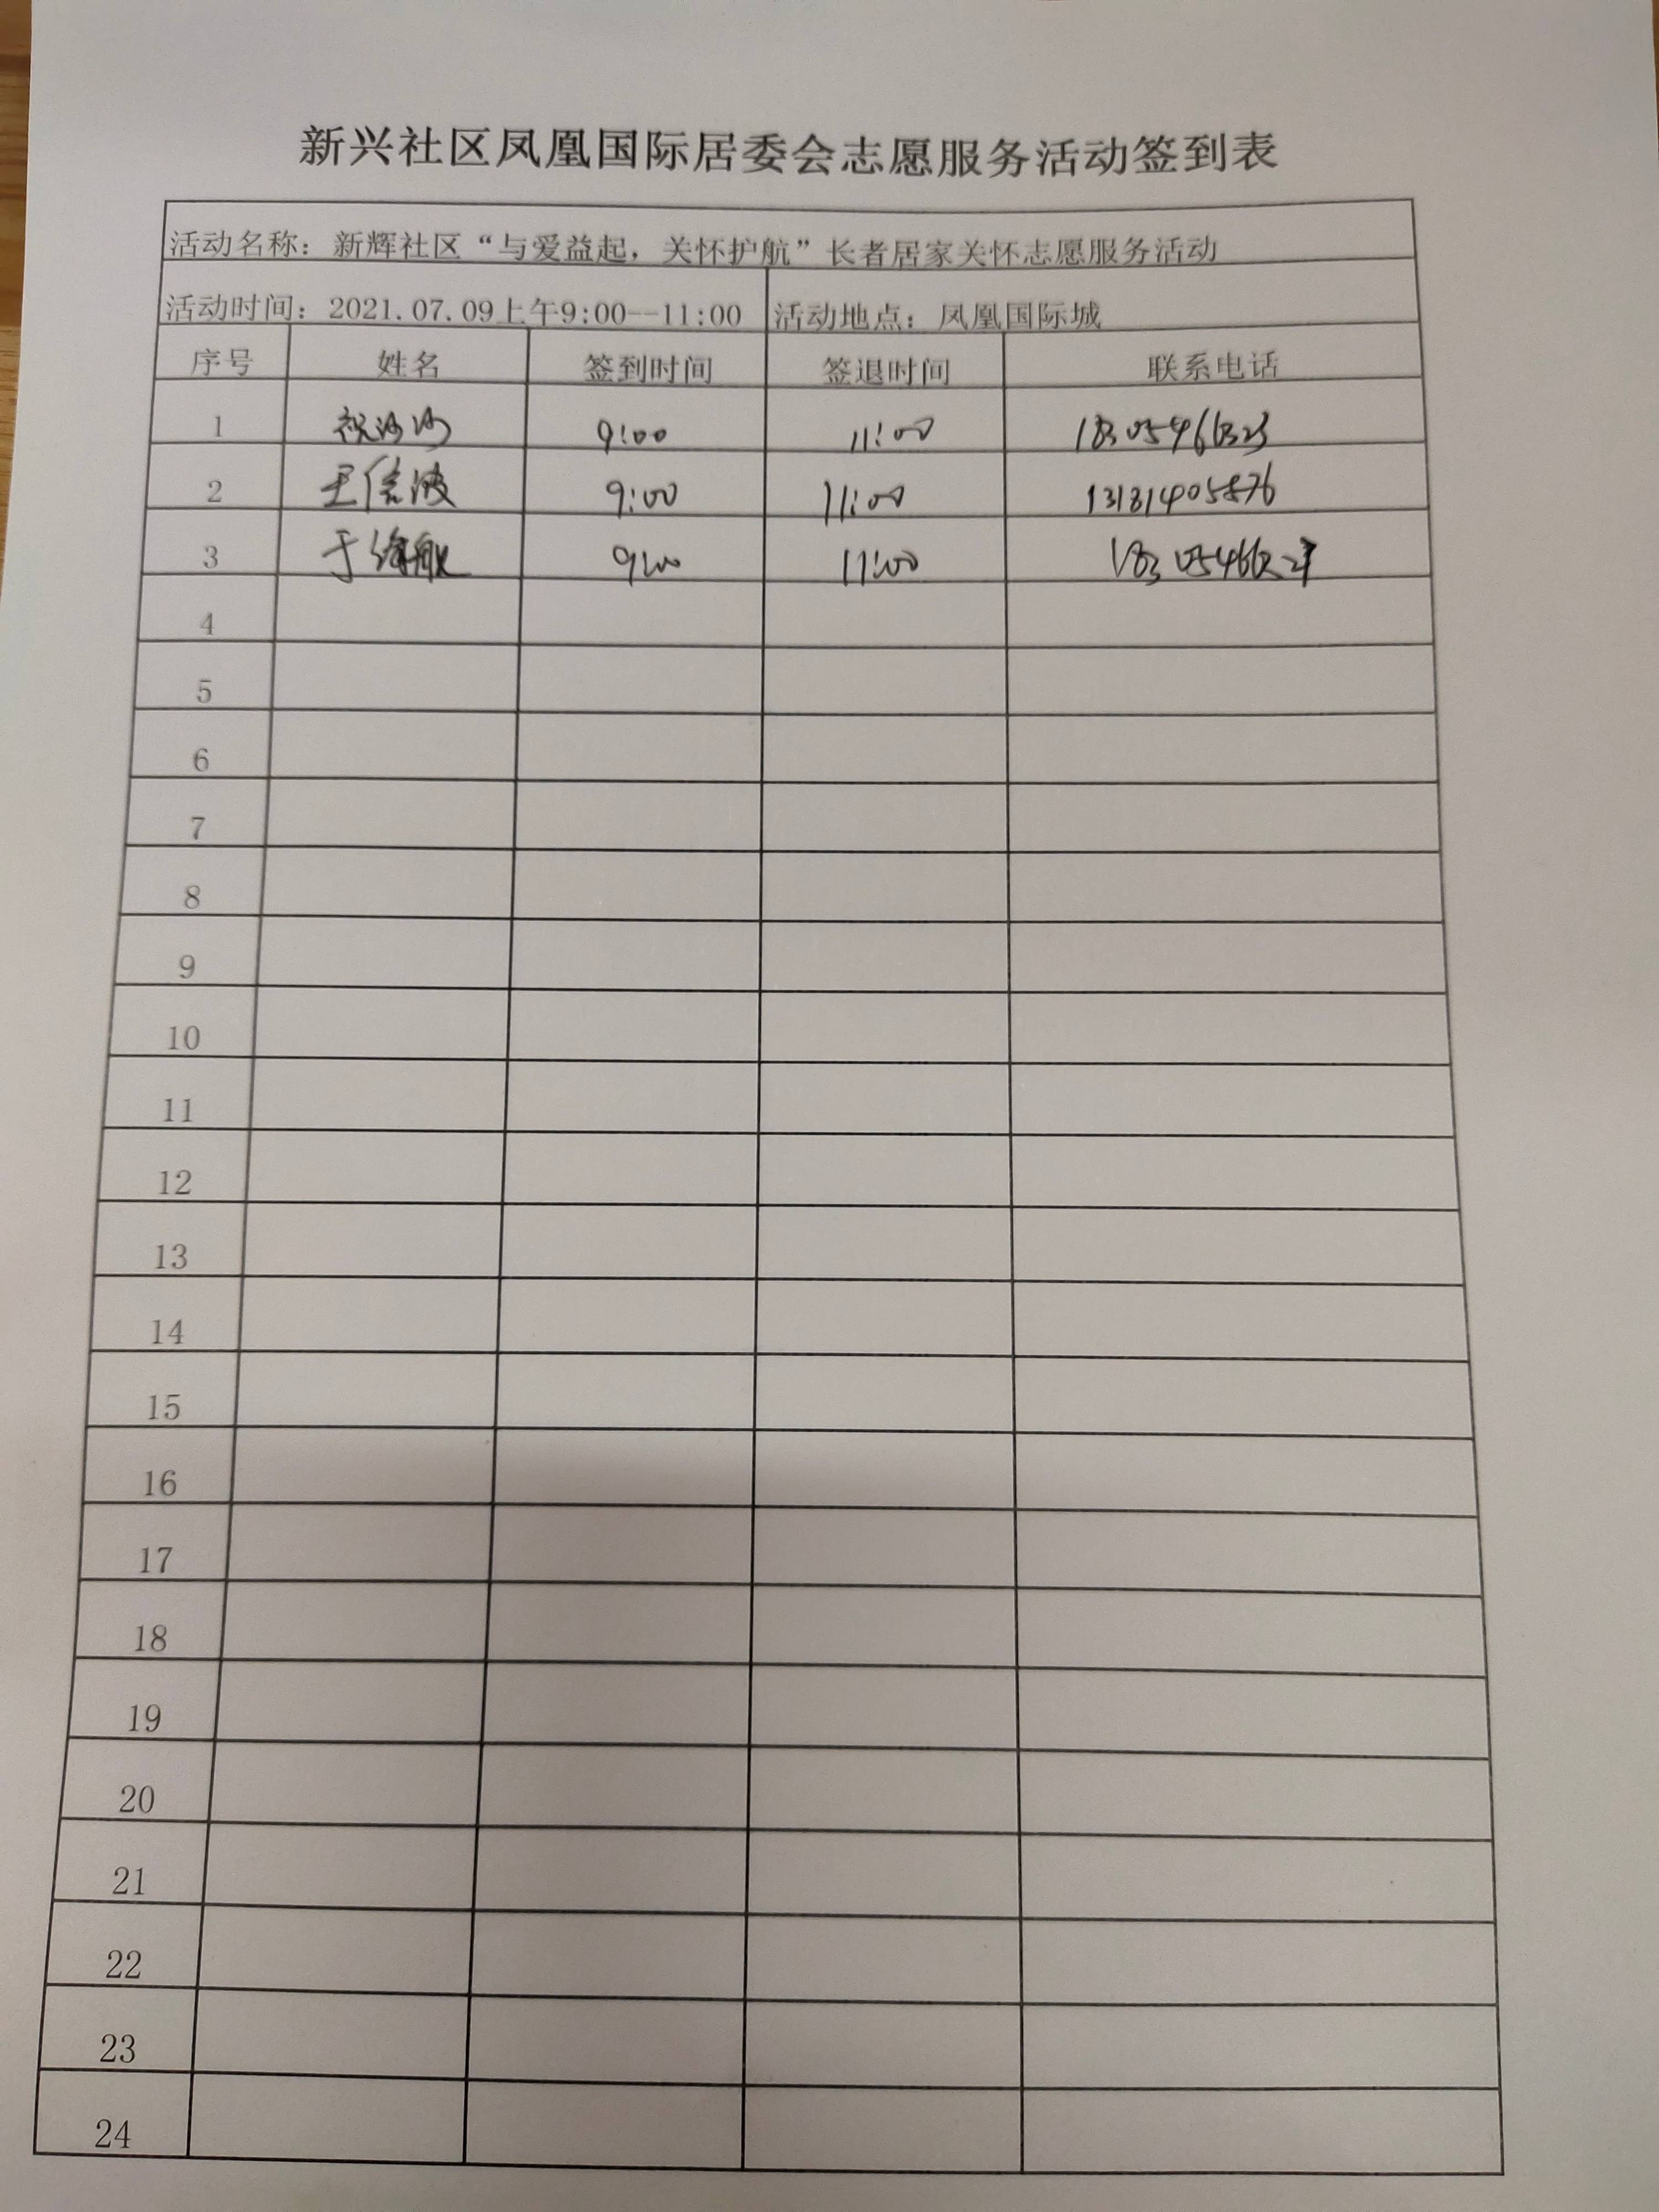 新兴社区凤凰国际居委会志愿服务活动签到表
活动名称：新辉社区“与爱益起，关怀护航”长者居家关怀志愿服务活动
活动时间：2021.07.09上午9:00--11:00 活动地点：凤凰国际城
序号 姓名 签到时间 签退时间 联系电话
1 祝沙沙 9:00 11:00
2 王信波 9:00 11:00 13181405876
3 于 9:00 11:00
4
5
6
7
8
9
10
11
12
13
14
15
16
17
18
19
20
21
22
23
24